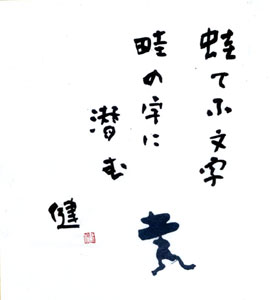 蛙てふ文字
畦の字に
潜む
健